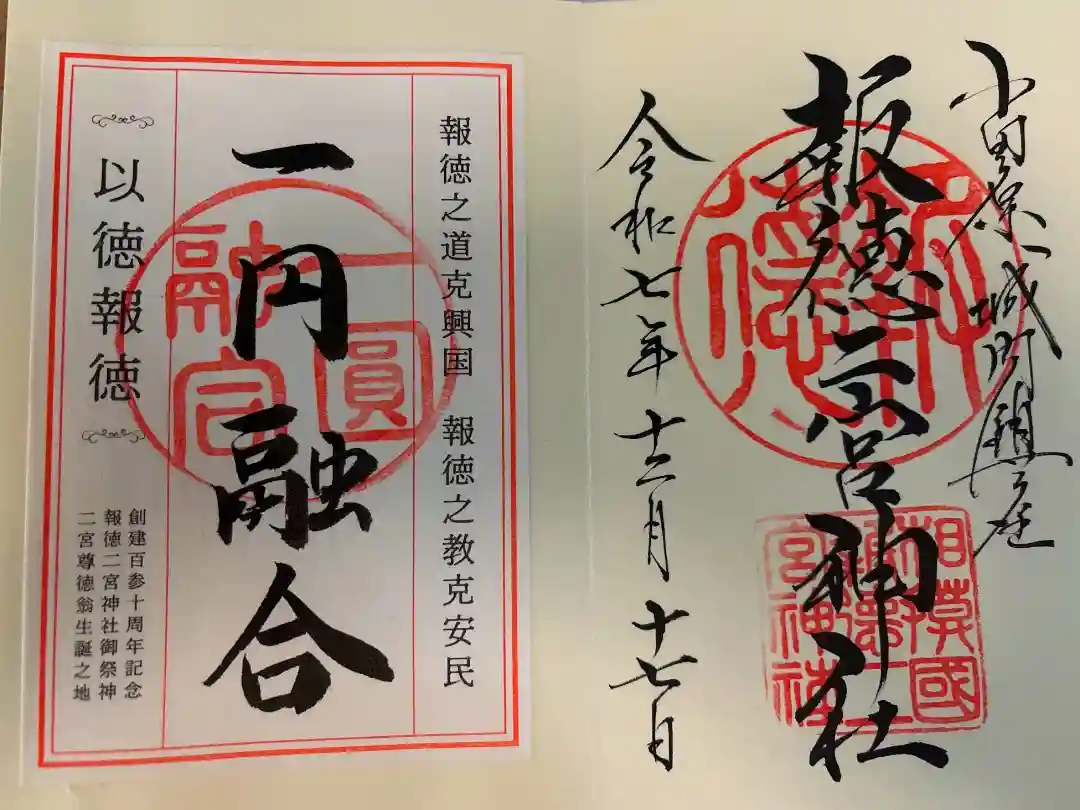 小田原城内鎮座
報徳二宮神社
令和七年十二月十七日
報徳
相模國
報徳二
宮神社
報徳之道克興国　報徳之教克安民
一円融合
一圓
融合
以徳報徳
創建百参十周年記念
報徳二宮神社御祭神
二宮尊徳翁生誕之地